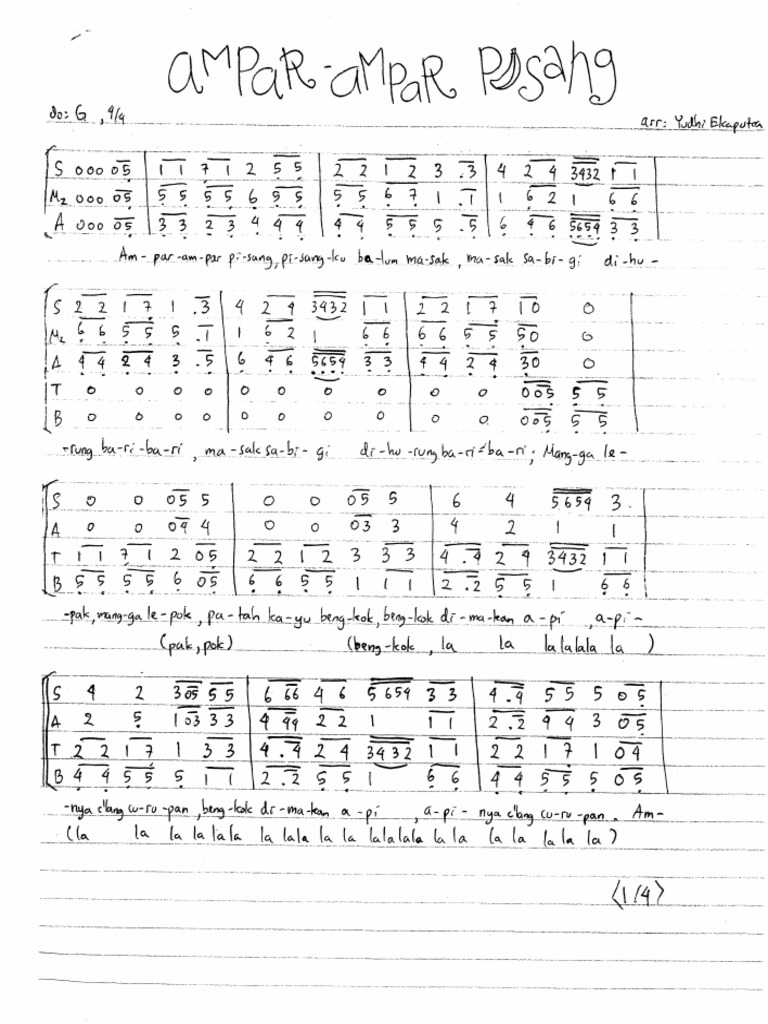 AMPAR-AMPAR PISANG
do: G , 4/4
arr: Yudhi Ekaputra
S 0 0 0 05 | 11 71 2 55 | 22 12 3 .3 | 4 24 3432 11
M2 0 0 0 05 | 55 55 6 55 | 55 67 1 .1 | 1 62 1 66
A 0 0 0 05 | 33 23 4 44 | 44 55 5 .5 | 6 46 5654 33
Am-par-am-par pi-sang, pi-sang-ku ba-lum ma-sak, ma-sak sa-bi-gi di-hu-
S 22 17 1 .3 | 4 24 3432 11 | 22 17 10 0
M2 66 55 5 .1 | 1 62 1 66 | 66 55 50 0
A 44 24 3 .5 | 6 46 5654 33 | 44 24 30 0
T 0 0 0 0 | 0 0 0 0 | 0 0 005 55
B 0 0 0 0 | 0 0 0 0 | 0 0 005 55
-rung ba-ri-ba-ri, ma-sak sa-bi-gi di-hu-rung ba-ri-ba-ri; Mang-ga le-
S 0 0 05 5 | 0 0 05 5 | 6 4 5654 3.
A 0 0 04 4 | 0 0 03 3 | 4 2 1 1
T 11 71 2 05 | 22 12 3 33 | 4.4 24 3432 11
B 55 55 6 05 | 66 55 1 11 | 2.2 55 1 66
-pak, mang-ga le-pok, pa-tah ka-yu beng-kok, beng-kok di-ma-kan a-pi, a-pi-
(pak, pok) (beng-kok, la la lalalala la )
S 4 2 305 55 | 6 66 4 6 5654 33 | 4.4 55 5 05
A 2 5 103 33 | 4 44 22 1 11 | 2.2 44 3 05
T 22 17 1 33 | 4.4 24 3432 11 | 22 17 1 04
B 44 55 5 11 | 2.2 55 1 66 | 44 55 5 05
-nya c'lang cu-ru-pan, beng-kok di-ma-kan a-pi, a-pi-nya c'lang cu-ru-pan. Am-
(la la la la lala la lala la la lalalala la la la la la la la )
<1/4>